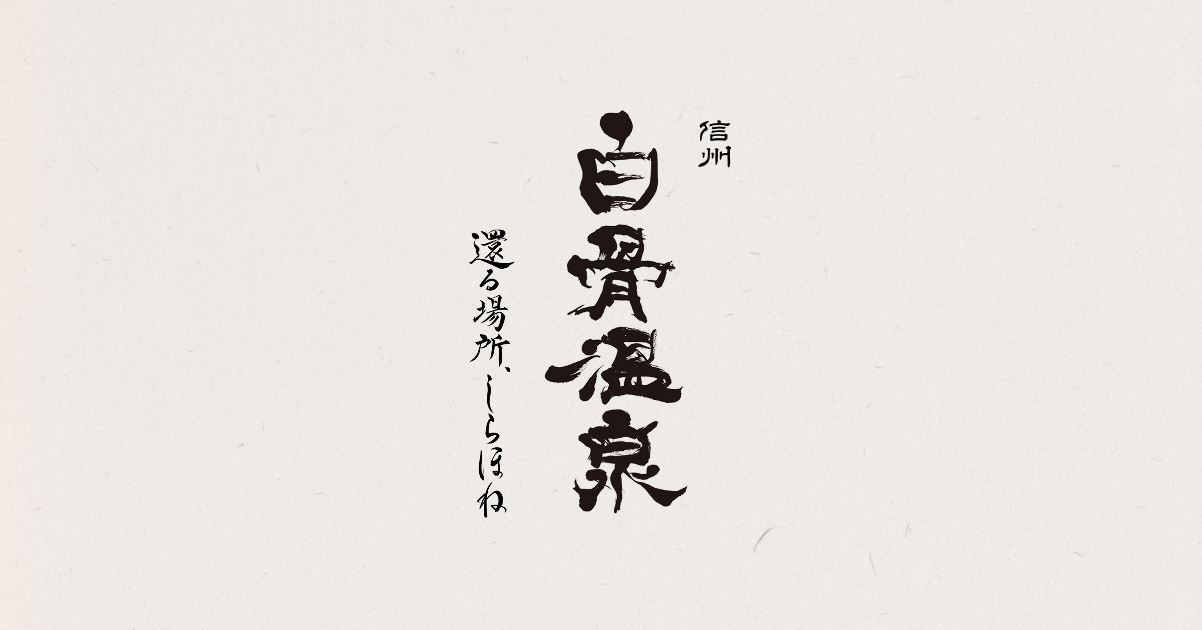 信州
白骨温泉
還る場所、しらほね